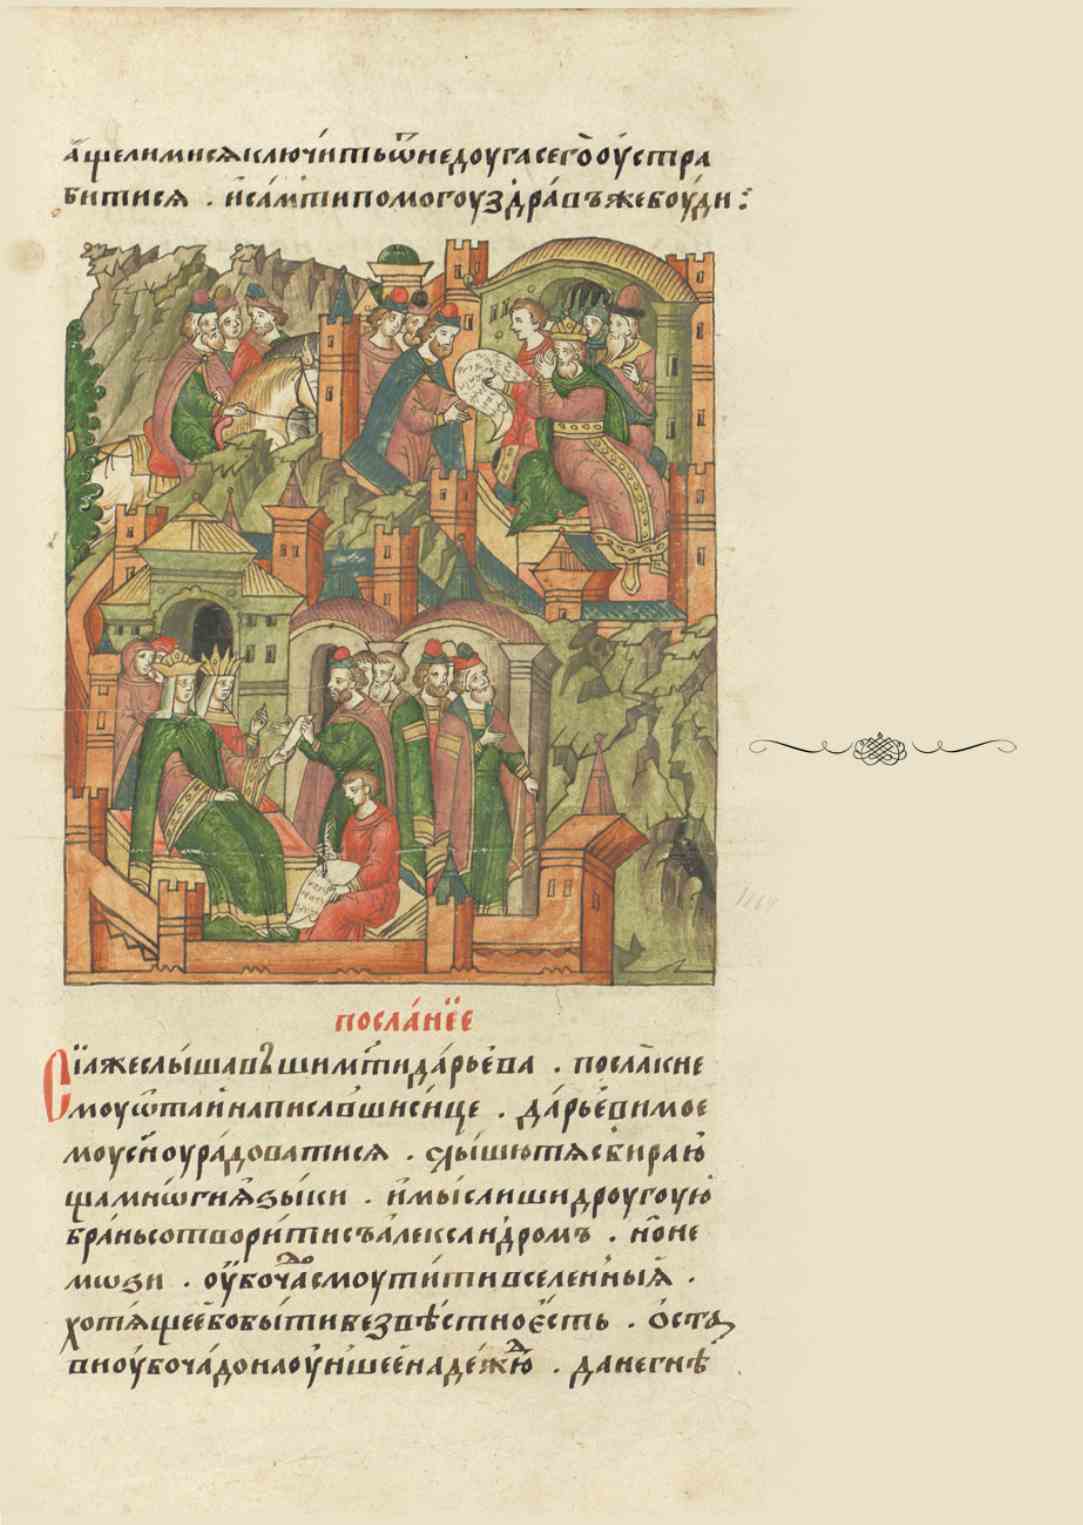 а҆щелимисѧключи́тьѿнедоугасего̀оу҆стра
битисѧ . и҆са́мтипомогоуздра́въжебоу́ди :
посла́нїе
Сїѧжеслы́шавъшимт҃идарьева . послакне
моуѿтаи҆написавшиси́це . да́рьевимое
моусн҃оура́доватисѧ . слы́шютѧсбираю҆
щамнѡгиѧ҆зы́ки . и҆мы́слишидроугоую
бра́ньсотвори́тисъале́ксандромъ . нѡне
мѡзи . оу҆бочасмоути́тивселенныѧ .
хотѧ́щеебобы́тибезвѣстное҆сть . ѻ҆ста
виоу҆боча́донлоу́ншеенаде́жю . данегнѣ